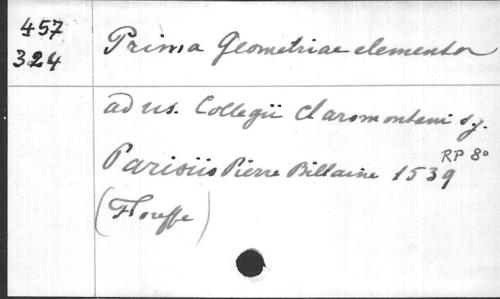 457
324
Prima Geometriae elementa
ad us. Collegii Claromontani s.j.
RP 8°
Parisiis Pierre Billaine 1539
(Floreffe)